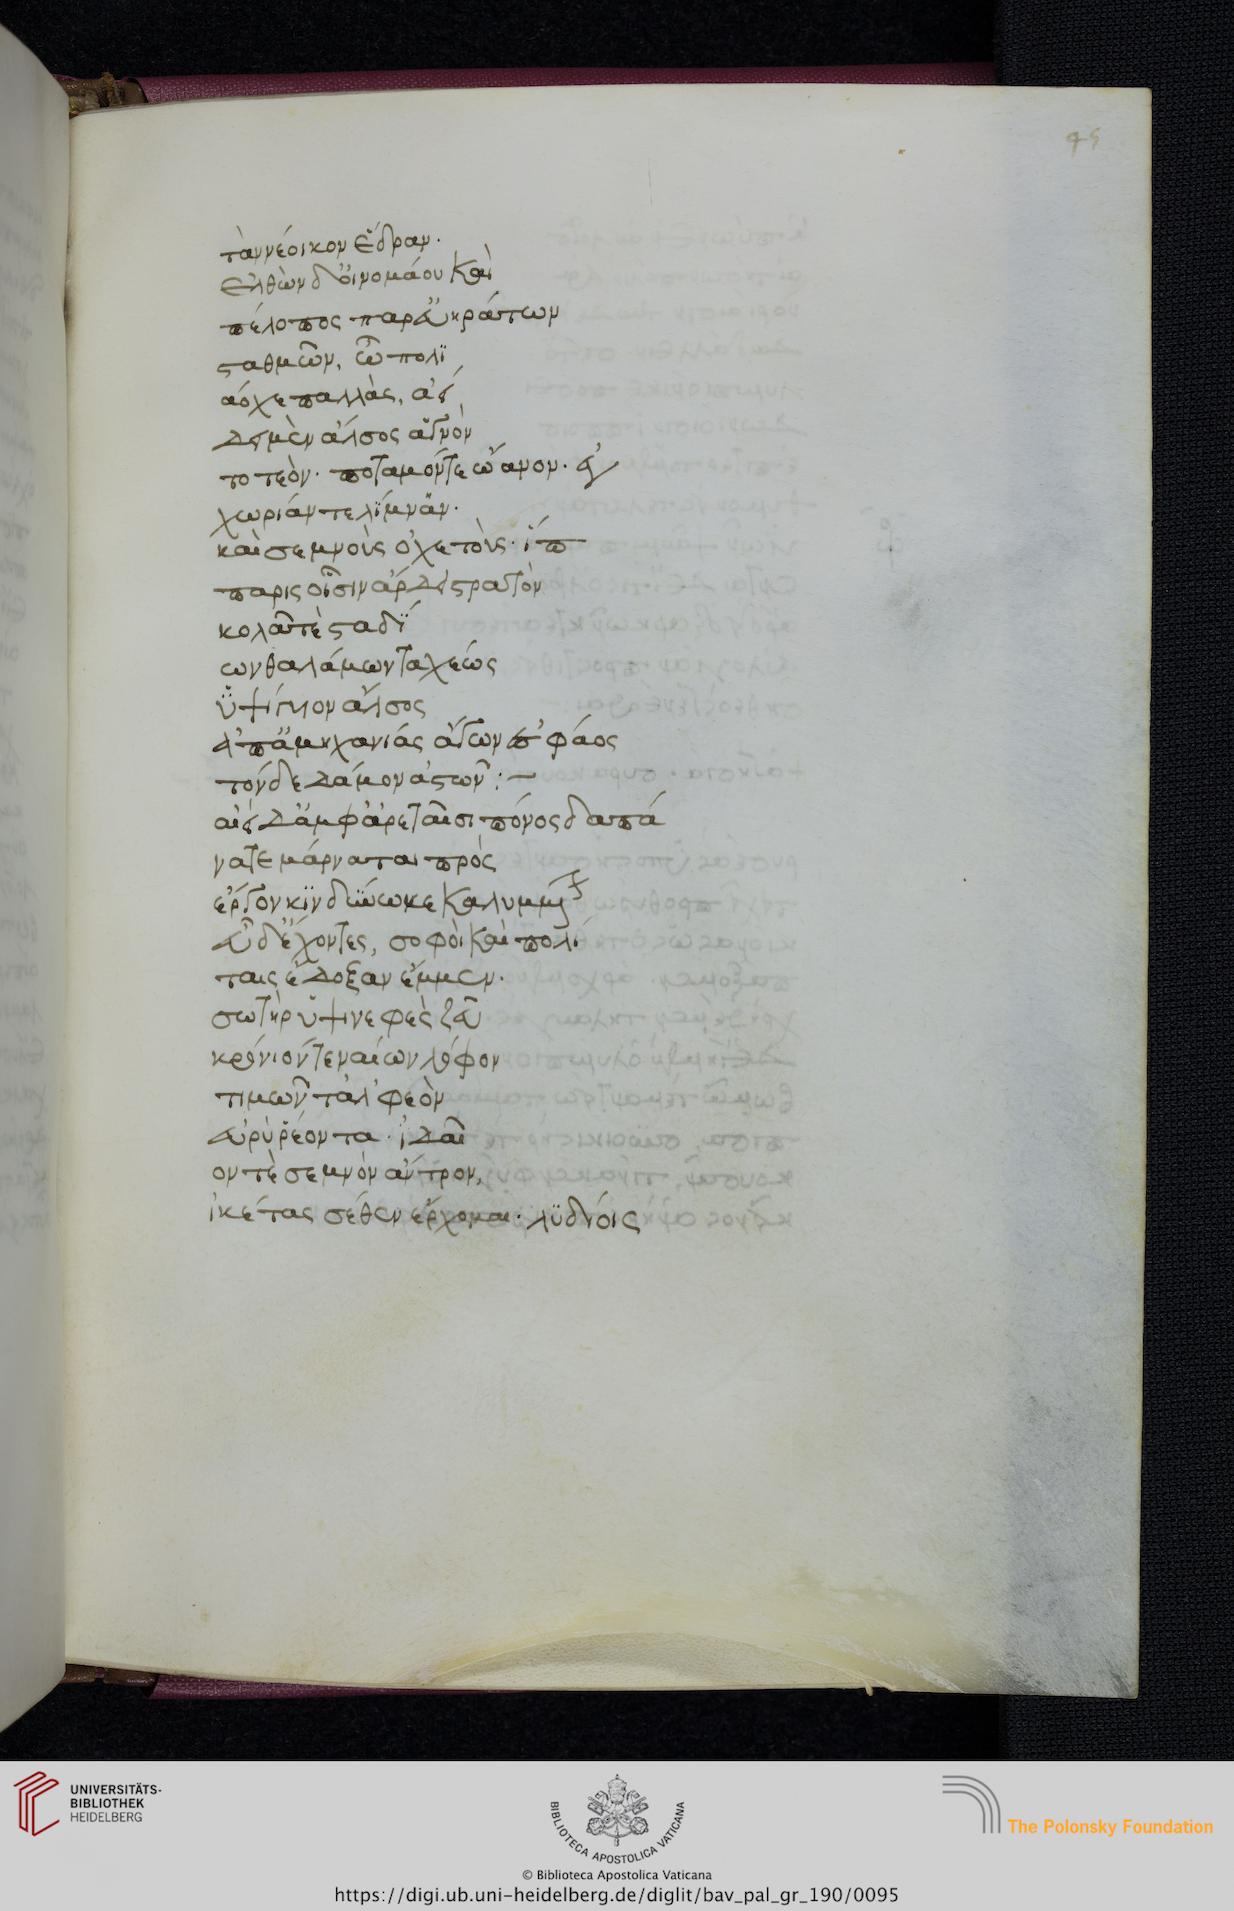 45
τὰν νέοικον ἕδραν.
ἐλθὼν δ' οἰνομάου καὶ
πέλοπος παρ' εὐηράτων
σταθμῶν, ὦ πολϊ
άοχε παλλὰς, ἀεί
δει μὲν ἄλσος ἁγνὸν
τὸ τεὸν. ποταμόν τε ὤανον. ἐγ
χωρίαν τε λίμναν.
καὶ σεμνοὺς ὀχετοὺς. ἵπ
παρις οἷσιν ἄρδει στρατὸν
κολλᾶ τὲ σταδί
ων θαλάμων ταχέως
ὑψίγυιον ἄλσος
ἀπ' ἀμηχανίας ἄγων ἐς φάος
τόνδε δᾶμον ἀστῶν :~
αἰεὶ δ' ἀμφ' ἀρεταῖσι πόνος δαπά
να τε μάρναται πρὸς
ἔργον κινδύνω κεκαλυμμένον
εὖ δ' ἔχοντες, σοφοὶ καὶ πολί
ταις ἔδοξαν ἔμμεν.
σωτὴρ ὑψινεφὲς ζεῦ
κρόνιόν τε ναίων λόφον
τιμῶν τ' ἀλφεὸν
εὐρὺ ῥέοντα. ἰδαῖ
ον τὲ σεμνὸν ἄντρον,
ἱκέτας σέθεν ἔρχομαι. λυδίοις
UNIVERSITÄTS-
BIBLIOTHEK
HEIDELBERG
BIBLIOTECA APOSTOLICA VATICANA
The Polonsky Foundation
© Biblioteca Apostolica Vaticana
https://digi.ub.uni-heidelberg.de/diglit/bav_pal_gr_190/0095